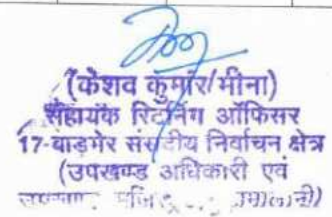 (केशव कुमार मीना)
सहायक रिटर्निंग ऑफिसर
17-बाड़मेर संसदीय निर्वाचन क्षेत्र
(उपखण्ड अधिकारी एवं